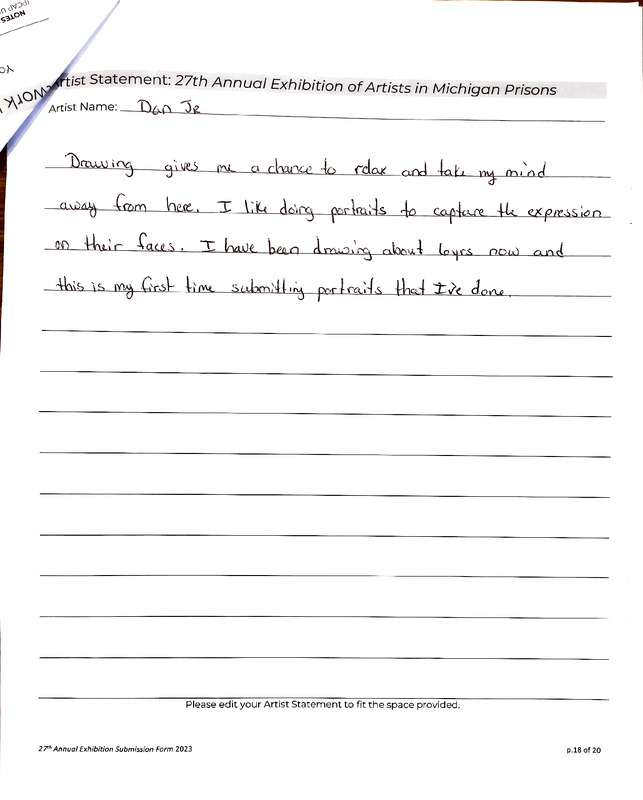 NOTES
YO
WORK
Artist Statement: 27th Annual Exhibition of Artists in Michigan Prisons
Artist Name: Dan Jr
Drawing gives me a chance to relax and take my mind
away from here. I like doing portraits to capture the expression
on their faces. I have been drawing about 6yrs now and
this is my first time submitting portraits that I've done.
Please edit your Artist Statement to fit the space provided.
27th Annual Exhibition Submission Form 2023
p.18 of 20